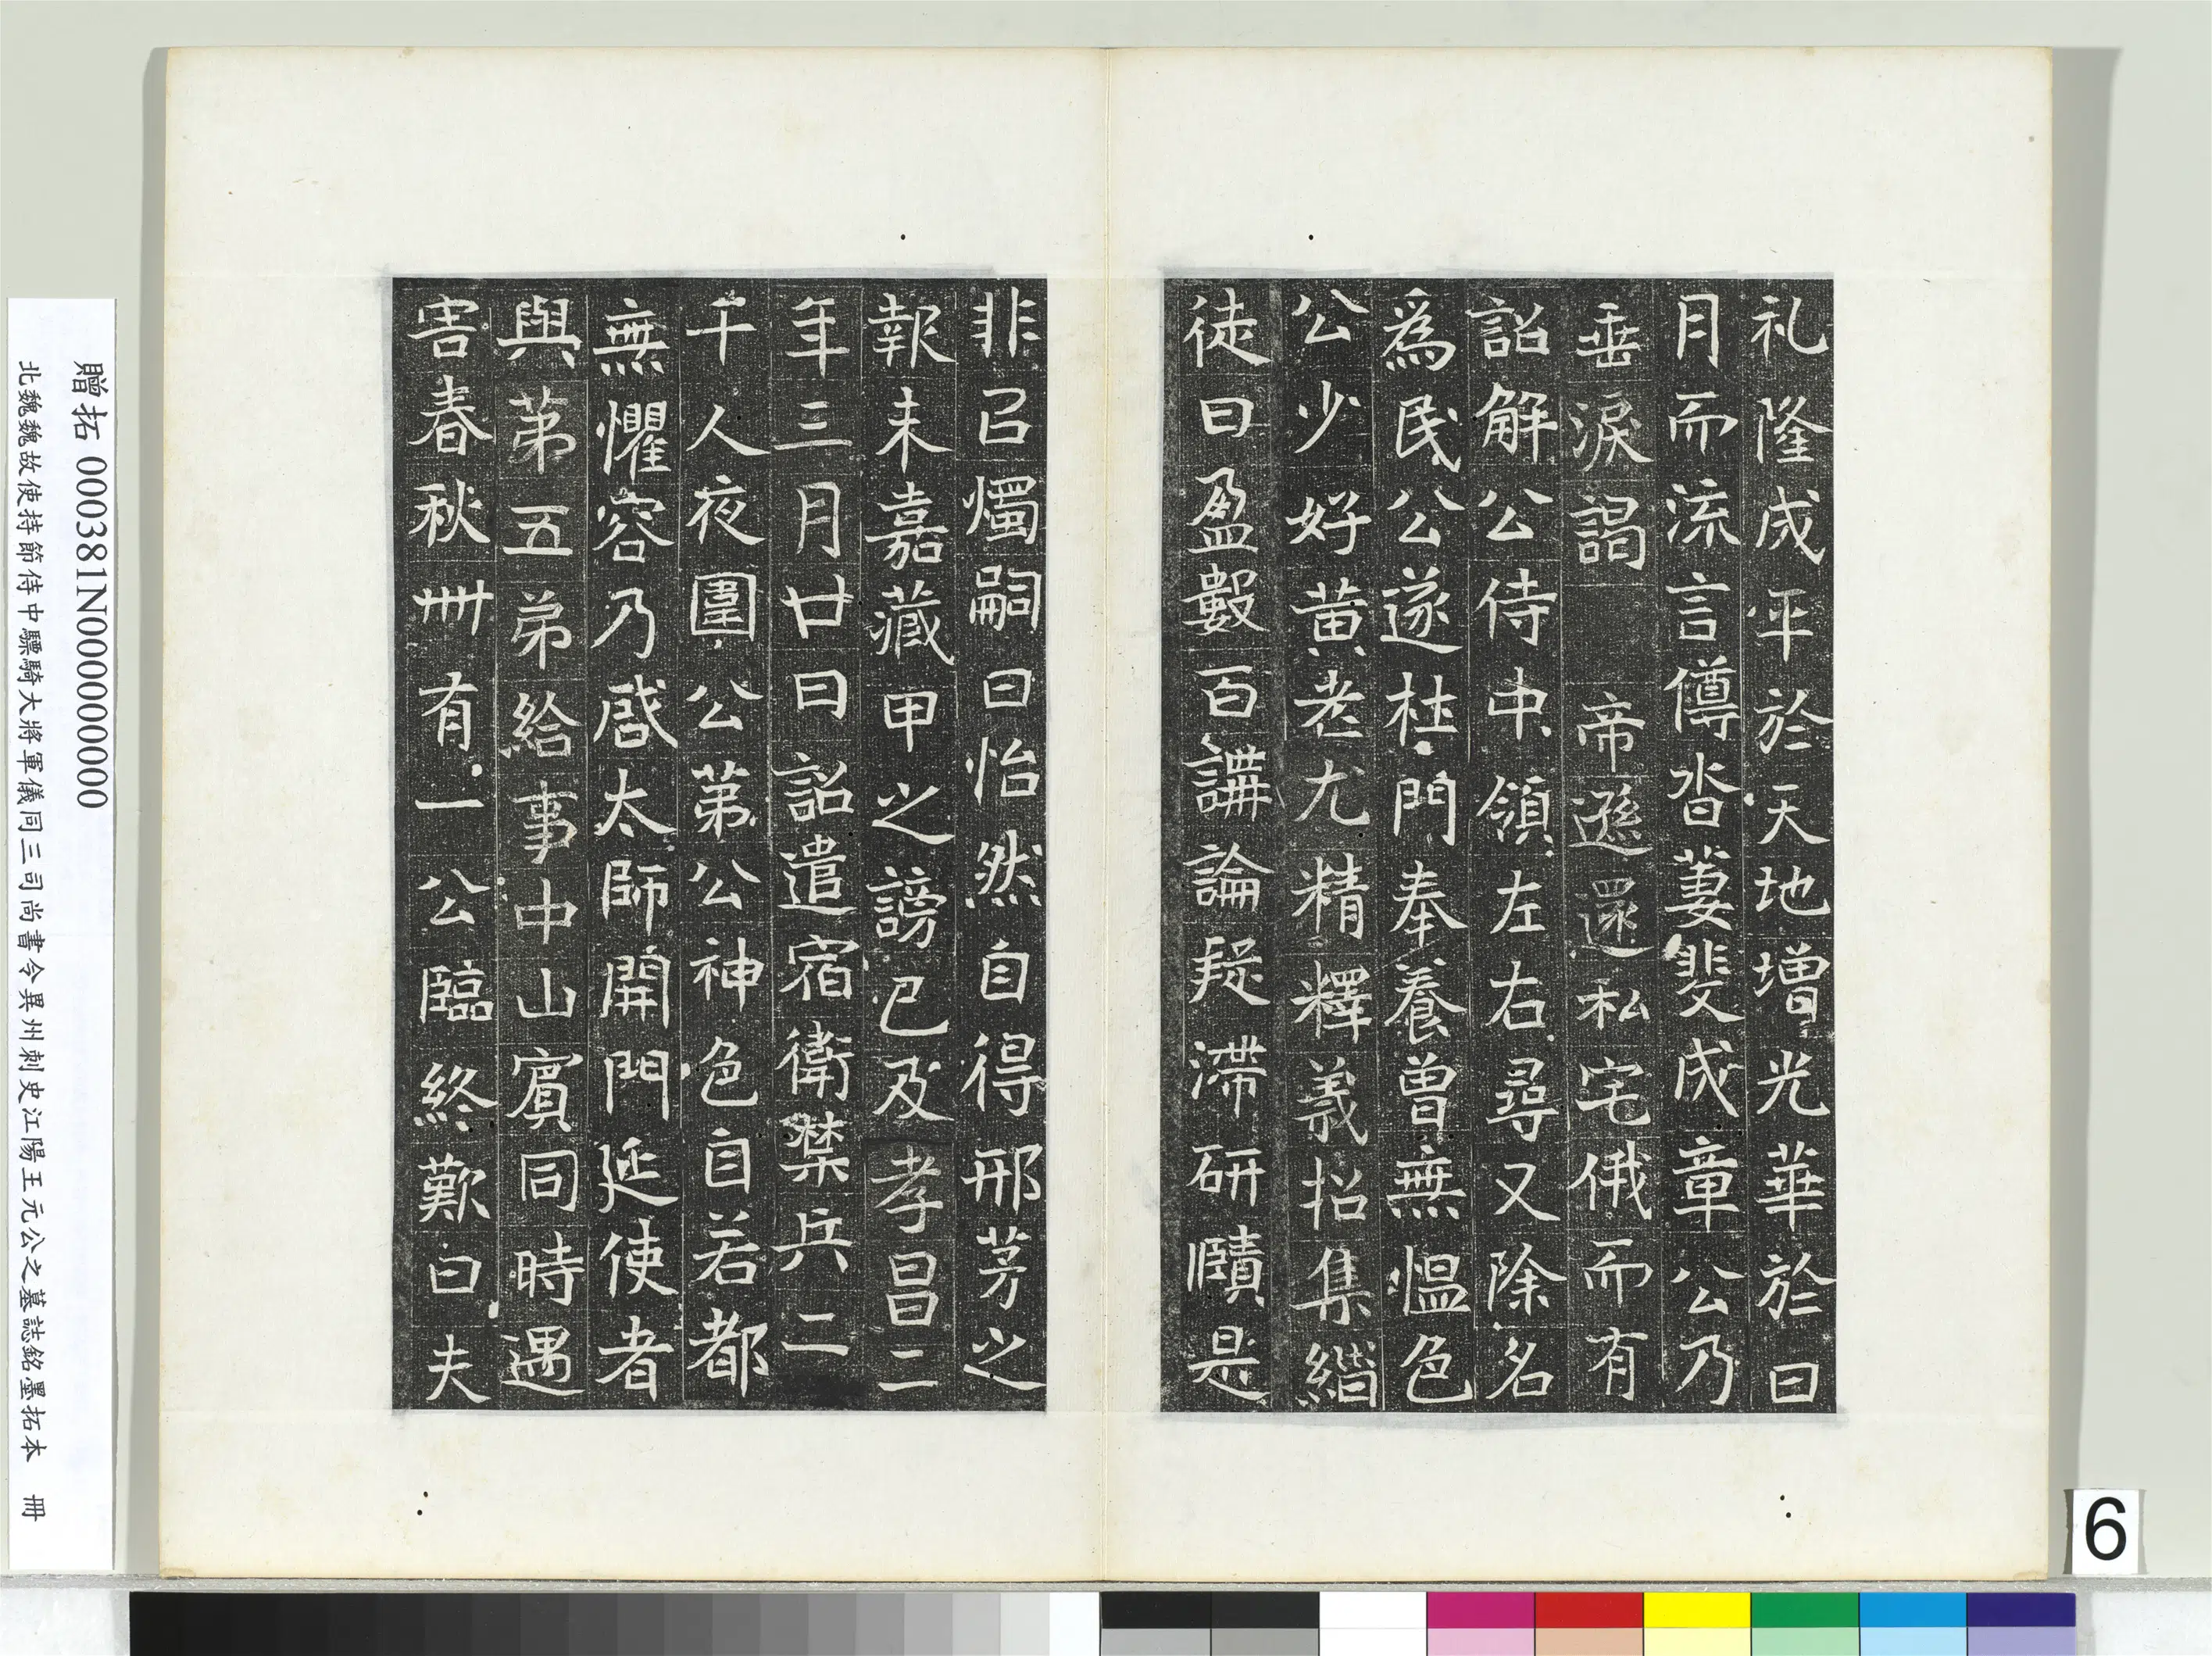 礼隆成平於天地增光華於日
月而流言僔沓萋斐成章公乃
垂淚謁 帝遜還私宅俄而有
詔解公侍中領左右尋又除名
爲民公遂杜門奉養曾無慍色
公少好黃老尤精釋義招集緇
徒日盈數百講論疑滯研賾是
非㠯燭嗣日怡然自得邢茅之
報未嘉藏甲之謗已及孝昌二
年三月廿日詔遣宿衛禁兵二
千人夜圍公第公神色自若都
無懼容乃啓太師開門延使者
與第五弟給事中山賓同時遇
害春秋卌有一公臨終歎曰夫
贈拓 000381N000000000
北魏魏故使持節侍中驃騎大將軍儀同三司尚書令冀州刺史江陽王元公之墓誌銘墨拓本 冊
6